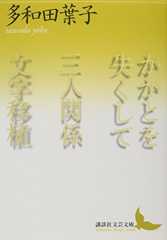 多和田葉子
tawada yoko
かかとを
失くして
三人関係
文字移植
講談社文芸文庫